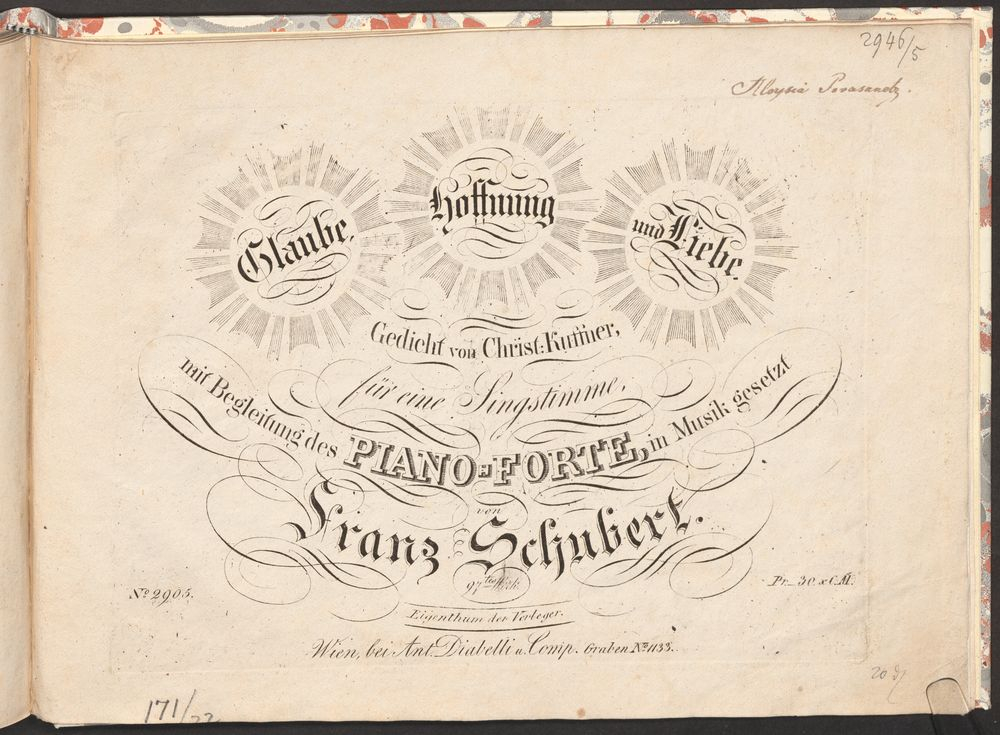 2946/5
Aloysia
Glaube,
Hoffnung
und Liebe.
Gedicht von Christ: Kuffner,
für eine Singstimme,
mit Begleitung des PIANO=FORTE, in Musik gesetzt
von
Franz Schubert.
97tes Werk.
No 2905.
Pr. 30 x C.M.
Eigenthum der Verleger.
Wien, bei Ant. Diabelli u. Comp. Graben No 1133.
171/